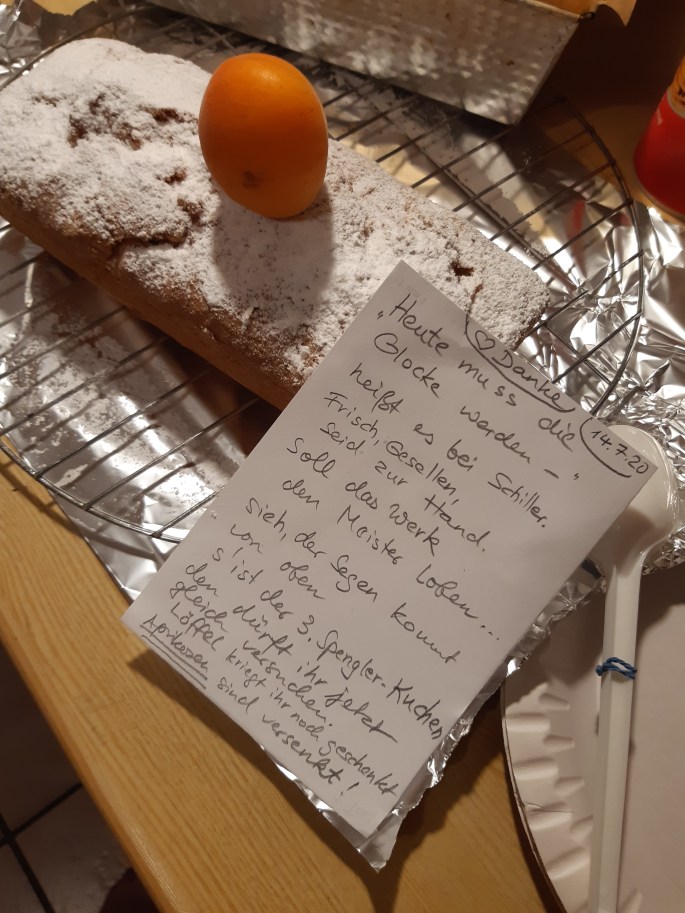 ♡ Danke
14.7.20
„Heute muss die
Glocke werden – "
heißt es bei Schiller.
Frisch, Gesellen,
seid zur Hand.
Soll das Werk
den Meister loben...
sieh, der Segen kommt
von oben
's ist der 3. Spengler-Kuchen,
den dürft ihr jetzt
gleich versuchen.
Löffel kriegt ihr noch geschenkt
Aprikosen sind versenkt!